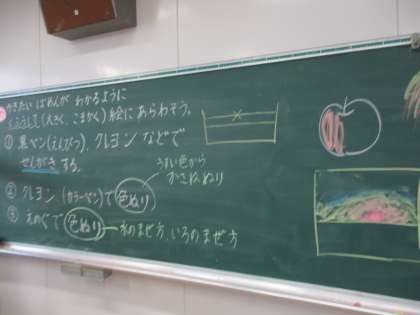 かきたい ばめんが わかるように
くふうして(大きく、こまかく)絵にあらわそう。
① 黒ペン(えんぴつ)、クレヨン などで
せんがき する。
うすい色から
かさねぬり
② クレヨン(カラーペン)で 色ぬり
③ えのぐで 色ぬり 水のまぜ方、いろのまぜ方